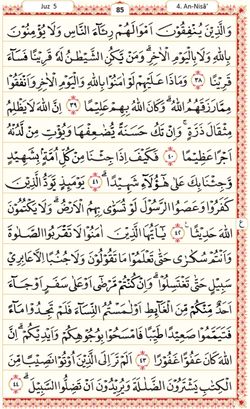 Juz 5
85
4. An-Nisā'
وَالَّذِيْنَ يُنْفِقُوْنَ اَمْوَالَهُمْ رِئَآءَ النَّاسِ وَلَا يُؤْمِنُوْنَ
بِاللّٰهِ وَلَا بِالْيَوْمِ الْاٰخِرِ ۗ وَمَنْ يَّكُنِ الشَّيْطٰنُ لَهٗ قَرِيْنًا فَسَاۤءَ
قَرِيْنًا ٣٨ وَمَاذَا عَلَيْهِمْ لَوْ اٰمَنُوْا بِاللّٰهِ وَالْيَوْمِ الْاٰخِرِ وَاَنْفَقُوْا
مِمَّا رَزَقَهُمُ اللّٰهُ ۗ وَكَانَ اللّٰهُ بِهِمْ عَلِيْمًا ٣٩ اِنَّ اللّٰهَ لَا يَظْلِمُ
مِثْقَالَ ذَرَّةٍ ۚ وَاِنْ تَكُ حَسَنَةً يُّضٰعِفْهَا وَيُؤْتِ مِنْ لَّدُنْهُ
اَجْرًا عَظِيْمًا ٤٠ فَكَيْفَ اِذَا جِئْنَا مِنْ كُلِّ اُمَّةٍۢ بِشَهِيْدٍ
وَّجِئْنَا بِكَ عَلٰى هٰٓؤُلَاۤءِ شَهِيْدًا ۗ ٤١ يَوْمَىِٕذٍ يَّوَدُّ الَّذِيْنَ
كَفَرُوْا وَعَصَوُا الرَّسُوْلَ لَوْ تُسَوّٰى بِهِمُ الْاَرْضُ ۗ وَلَا يَكْتُمُوْنَ
اللّٰهَ حَدِيْثًا ٤٢ يٰٓاَيُّهَا الَّذِيْنَ اٰمَنُوْا لَا تَقْرَبُوا الصَّلٰوةَ
وَاَنْتُمْ سُكٰرٰى حَتّٰى تَعْلَمُوْا مَا تَقُوْلُوْنَ وَلَا جُنُبًا اِلَّا عَابِرِيْ
سَبِيْلٍ حَتّٰى تَغْتَسِلُوْا ۗ وَاِنْ كُنْتُمْ مَّرْضٰٓى اَوْ عَلٰى سَفَرٍ اَوْ جَاۤءَ
اَحَدٌ مِّنْكُمْ مِّنَ الْغَاۤىِٕطِ اَوْ لٰمَسْتُمُ النِّسَاۤءَ فَلَمْ تَجِدُوْا مَاۤءً
فَتَيَمَّمُوْا صَعِيْدًا طَيِّبًا فَامْسَحُوْا بِوُجُوْهِكُمْ وَاَيْدِيْكُمْ ۗ اِنَّ
اللّٰهَ كَانَ عَفُوًّا غَفُوْرًا ٤٣ اَلَمْ تَرَ اِلَى الَّذِيْنَ اُوْتُوْا نَصِيْبًا مِّنَ
الْكِتٰبِ يَشْتَرُوْنَ الضَّلٰلَةَ وَيُرِيْدُوْنَ اَنْ تَضِلُّوا السَّبِيْلَ ۗ ٤٤
ع